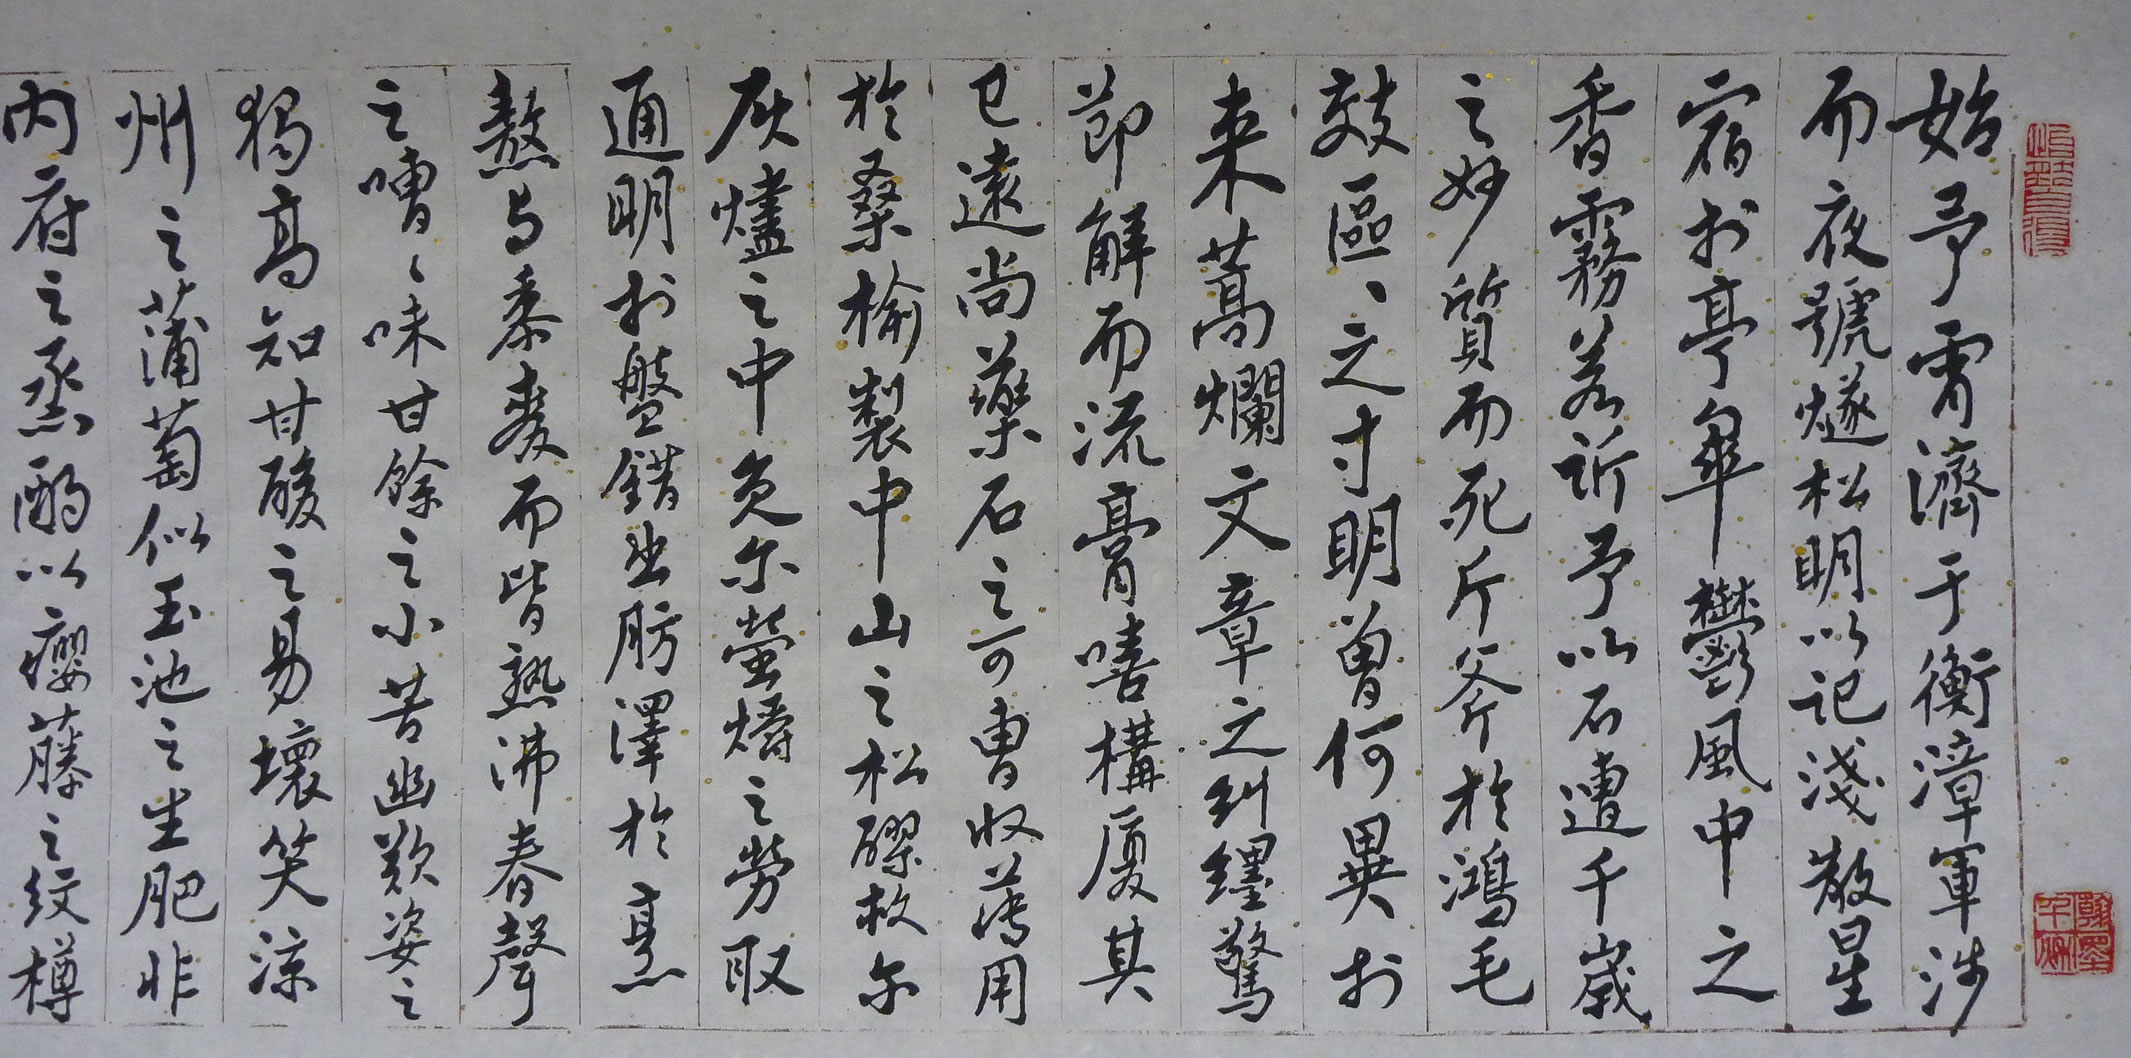 始予宵濟于衡漳軍涉
而夜號燧松明以記淺散星
宿於亭皋鬱風中之
香霧若訴予以不遭千歲
之妙質而死斤斧於鴻毛
效區、之寸明曾何異於
束蒿爛文章之糾纆驚
節解而流膏嘻構廈其
已遠尚藥石之可曹收薄用
於桑榆製中山之松醪救尔
灰燼之中免尔螢爝之勞取
通明於盤錯出肪澤於烹
熬与黍麥而皆熟沸春聲
之嘈〻味甘餘之小苦幽歎姿之
獨高知甘酸之易壞笑涼
州之蒲萄似玉池之生肥非
內府之烝酌以癭藤之紋樽